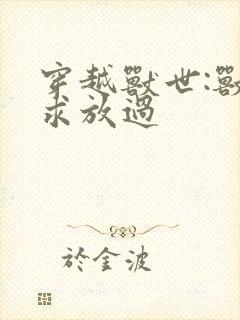 穿越獸世:獸
求放過
於金波